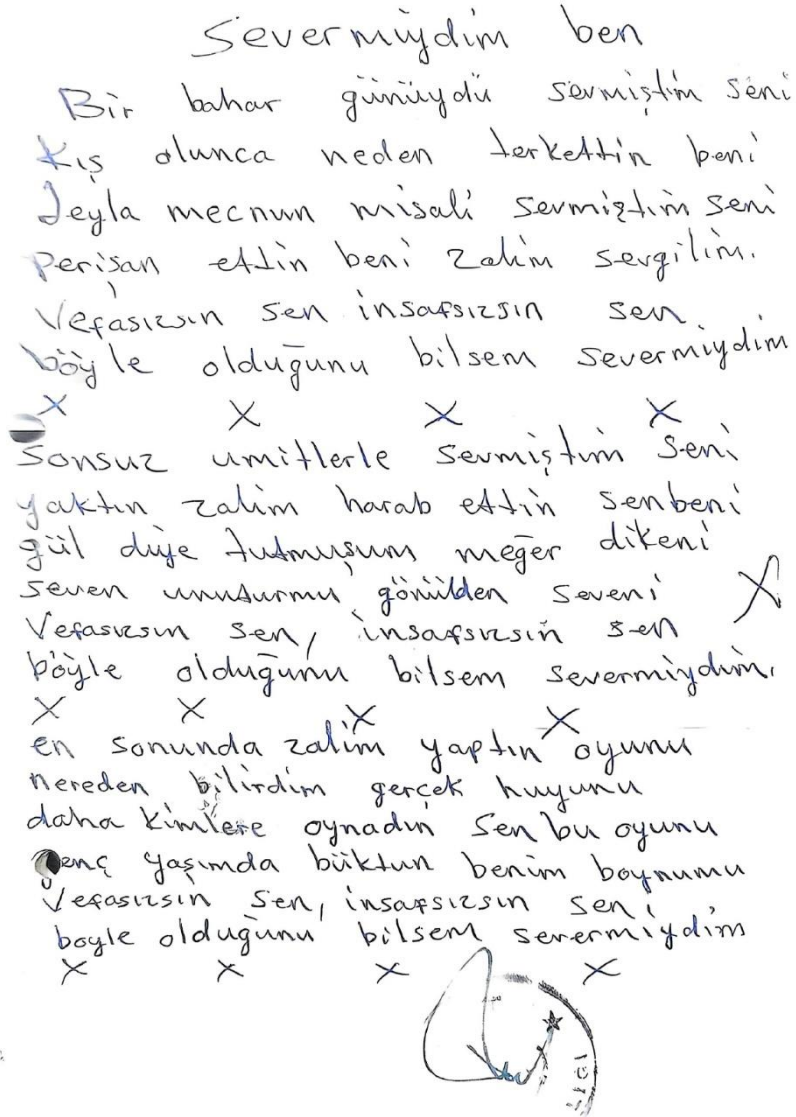 Severmiydim ben
Bir bahar günüydü sevmiştim seni
Kış olunca neden terkettin beni
Leyla mecnun misali sevmiştim seni
Perişan ettin beni zalim sevgilim.
Vefasızsın sen insafsızsın sen
böyle olduğunu bilsem severmiydim
X X X X
Sonsuz umitlerle sevmiştim seni
yaktın zalim harab ettin senbeni
gül diye tutmuşum meğer dikeni
seven unuturmu gönülden seveni X
Vefasızsın sen, insafsızsın sen
böyle olduğunu bilsem severmiydim.
X X X X
en sonunda zalim yaptın oyunu
nereden bilirdim gerçek huyunu
daha kimlere oynadın sen bu oyunu
Genç yaşımda büktun benim boynumu
Vefasızsın sen, insafsızsın sen
boyle olduğunu bilsem severmiydim
X X X X